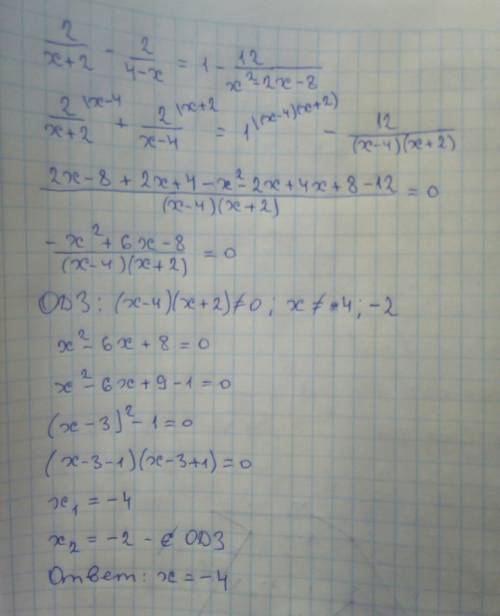 2/(x+2) - 2/(4-x) = 1 - 12/(x²-2x-8)
2/(x+2) |x-4 + 2/(x-4) |x+2 = 1 |(x-4)(x+2) - 12/((x-4)(x+2))
(2x-8+2x+4-x²-2x+4x+8-12)/((x-4)(x+2)) = 0
(-x²+6x-8)/((x-4)(x+2)) = 0
ОДЗ: (x-4)(x+2)≠0; x≠-4; -2
x²-6x+8=0
x²-6x+9-1=0
(x-3)²-1=0
(x-3-1)(x-3+1)=0
x₁=-4
x₂=-2 - ∉ ОДЗ
Ответ: x=-4